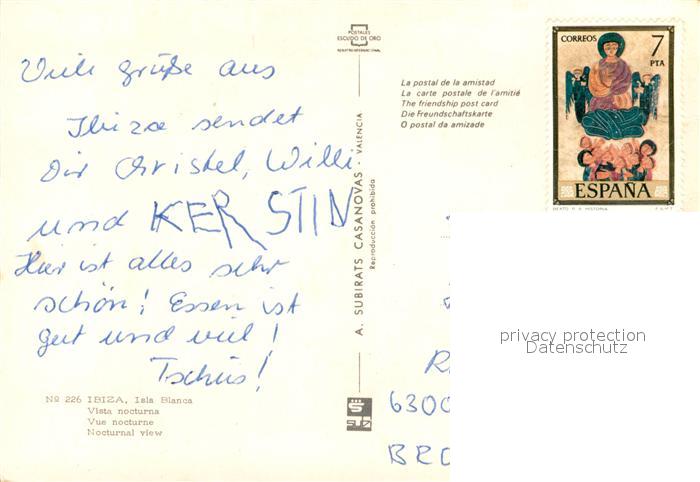 Viele grüße aus
Ibiza sendet
Dir Christel, Willi
und KERSTIN
Hier ist alles sehr
schön! Essen ist
gut und viel!
Tschüs!
Nº 226 IBIZA, Isla Blanca
Vista nocturna
Vue nocturne
Nocturnal view
POSTALES
ESCUDO DE ORO
REGISTRO INTERNACIONAL
A. SUBIRATS CASANOVAS - VALENCIA
Reproducción prohibida
La postal de la amistad
La carte postale de l'amitié
The friendship post card
Die Freundschaftskarte
O postal da amizade
CORREOS 7
PTA
ESPAÑA
privacy protection
Datenschutz
R
6300
BRD